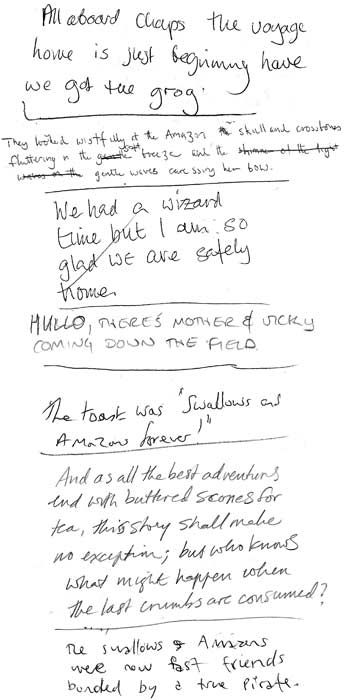 All aboard chaps the voyage
home is just beginning have
we got the grog.
They looked wistfully at the Amazon skull and crossbones
fluttering in the gentle breeze and the shimmer of the light
waves on the gentle waves caressing her bow.
We had a wizard
time but I am so
glad WE are safely
home.
HULLO, THERE'S MOTHER & VICKY
COMING DOWN THE FIELD.
The toast was "Swallows and
Amazons forever!"
And as all the best adventures
end with buttered scones for
tea, this story shall make
no exception; but who knows
what might happen when
the last crumbs are consumed?
The swallows & Amazons
were now fast friends
bonded by a true pirate.